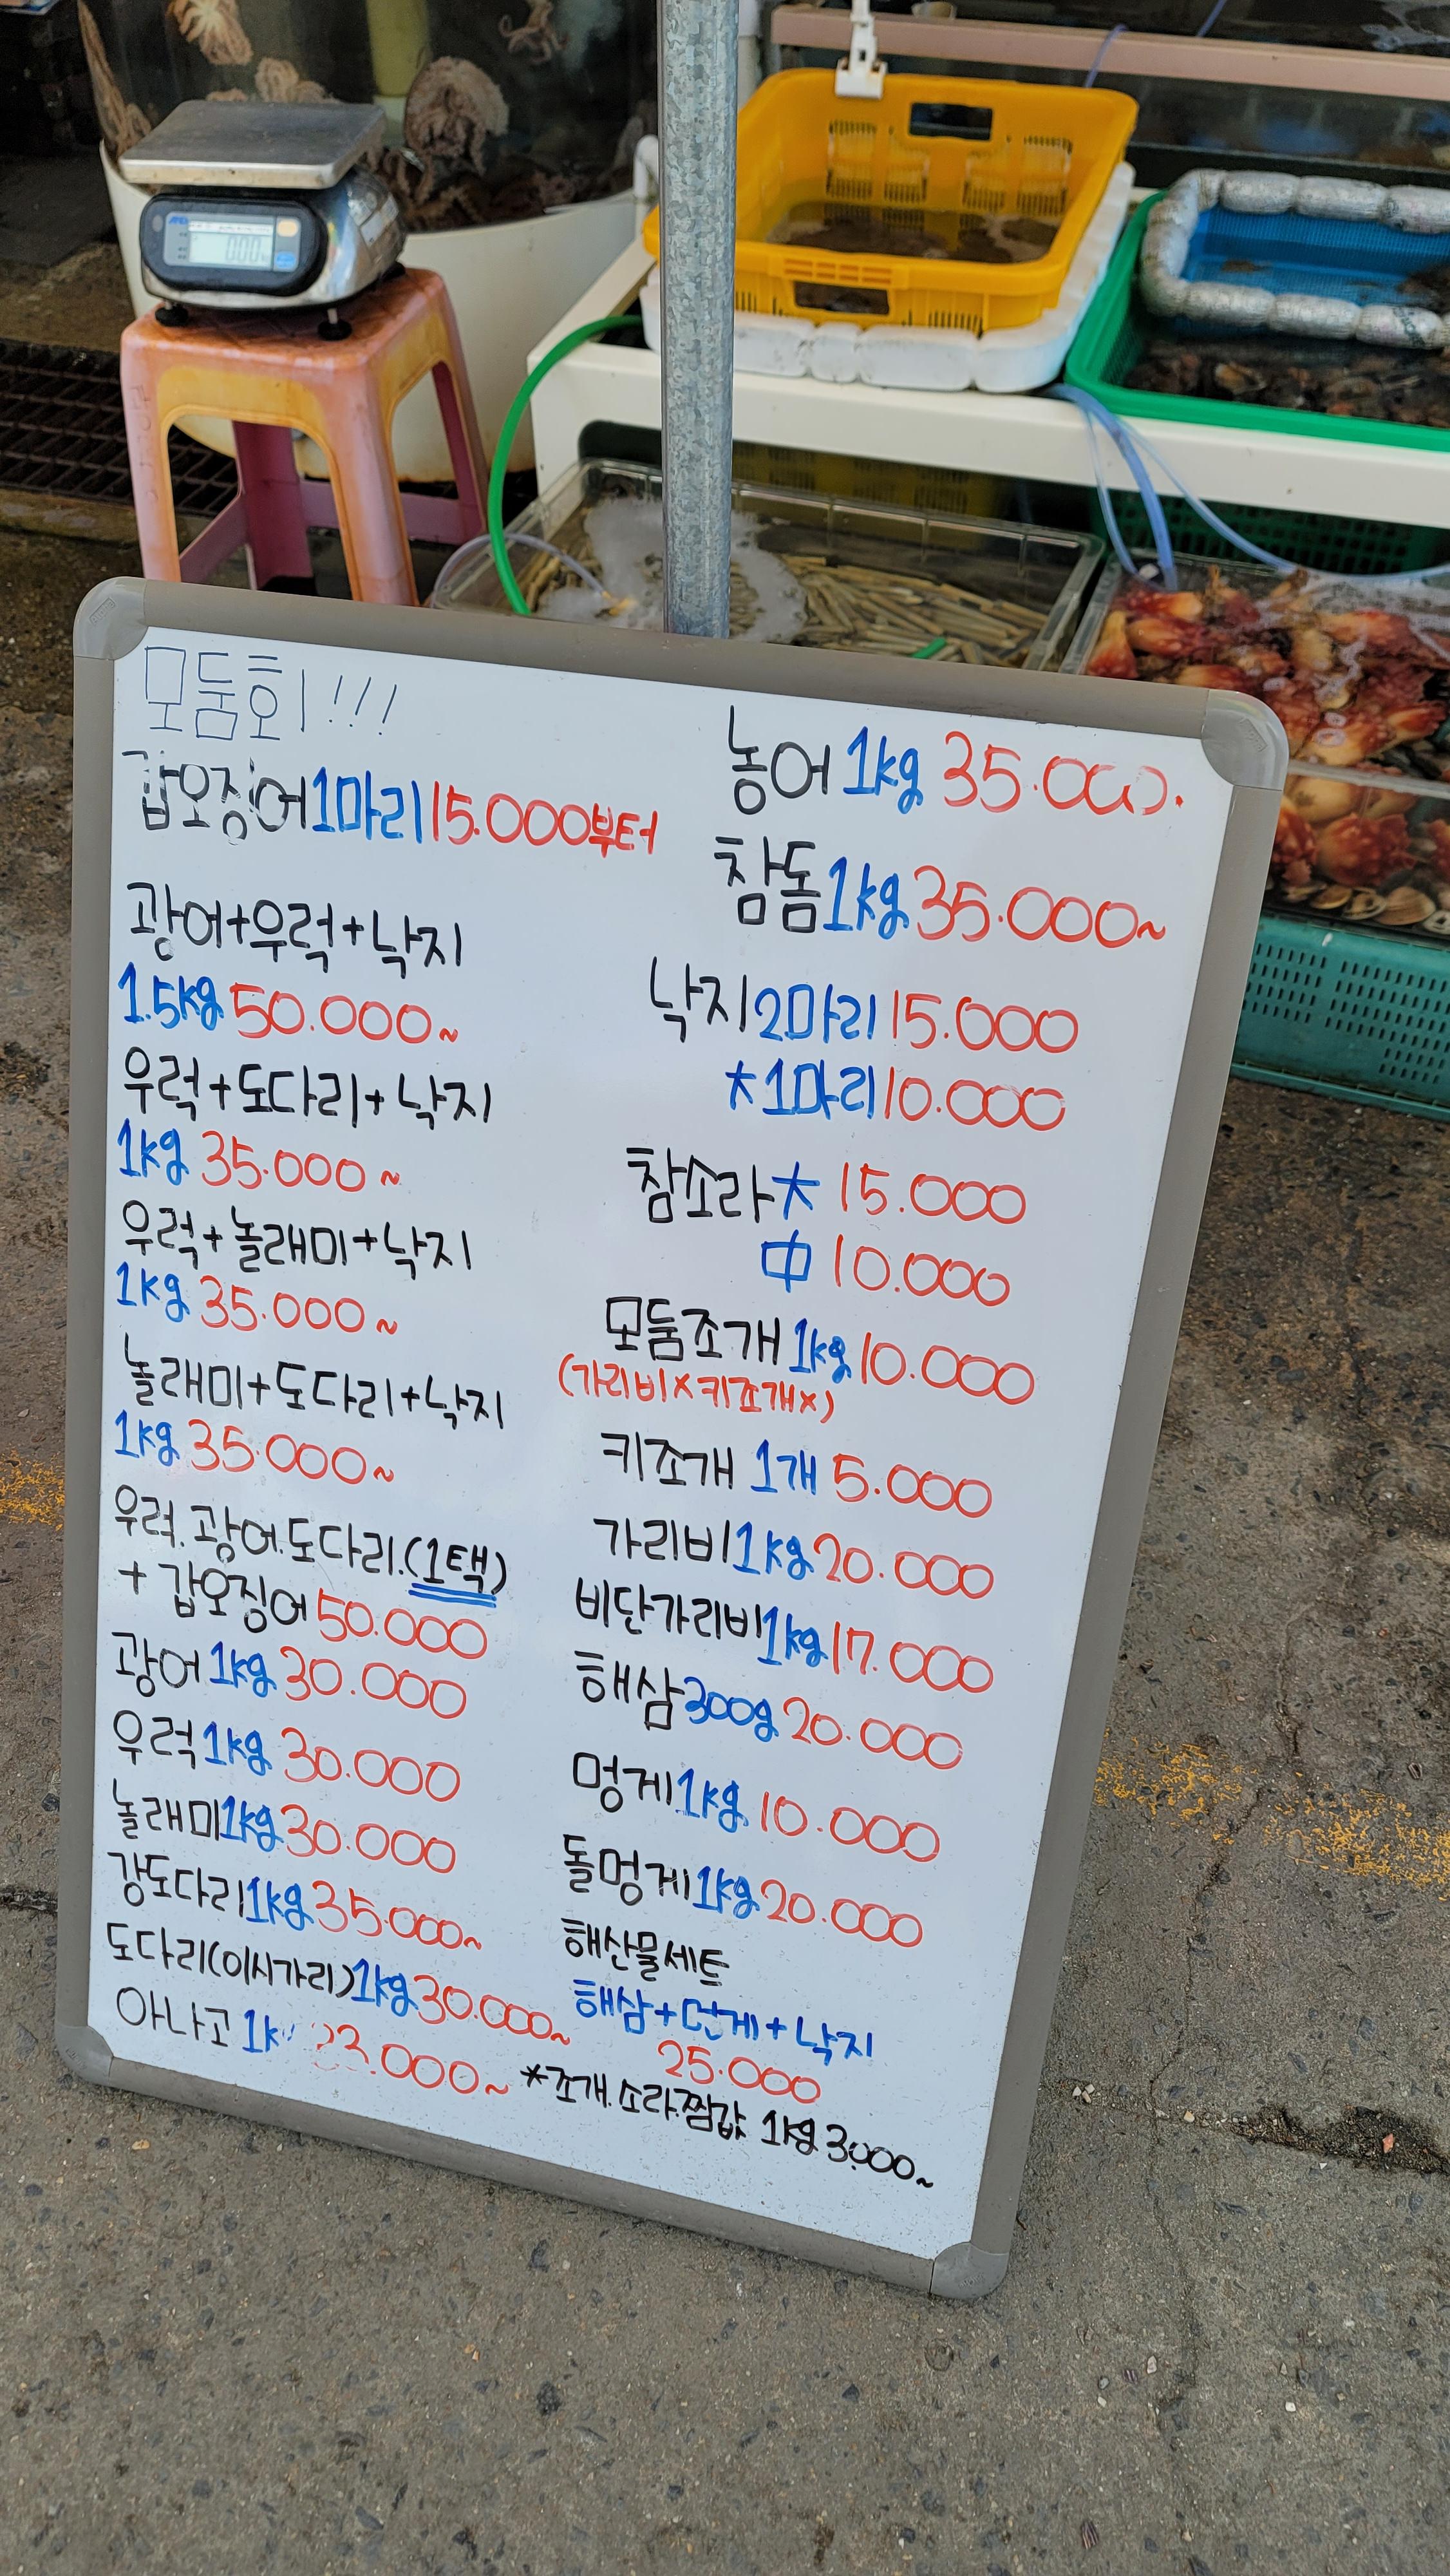 모둠회!!!
갑오징어1마리15.000부터
광어+우럭+낙지
1.5kg 50.000~
우럭+도다리+낙지
1kg 35.000~
우럭+놀래미+낙지
1kg 35.000~
놀래미+도다리+낙지
1kg 35.000~
우럭.광어.도다리.(1택)
+갑오징어 50.000
광어 1kg 30.000
우럭 1kg 30.000
놀래미 1kg 30.000
강도다리 1kg 35.000~
도다리(이시가리) 1kg 30.000~
아나고 1k 23.000~
농어 1kg 35.000.
참돔 1kg 35.000~
낙지 2마리 15.000
*1마리 10.000
참소라 大 15.000
中 10.000
모둠조개 1kg 10.000
(가리비×키조개×)
키조개 1개 5.000
가리비 1kg 20.000
비단가리비 1kg 17.000
해삼 300g 20.000
멍게 1kg 10.000
돌멍게 1kg 20.000
해산물세트
해삼+멍게+낙지
25.000
*조개.소라.찜값 1kg 3.000~
0.00